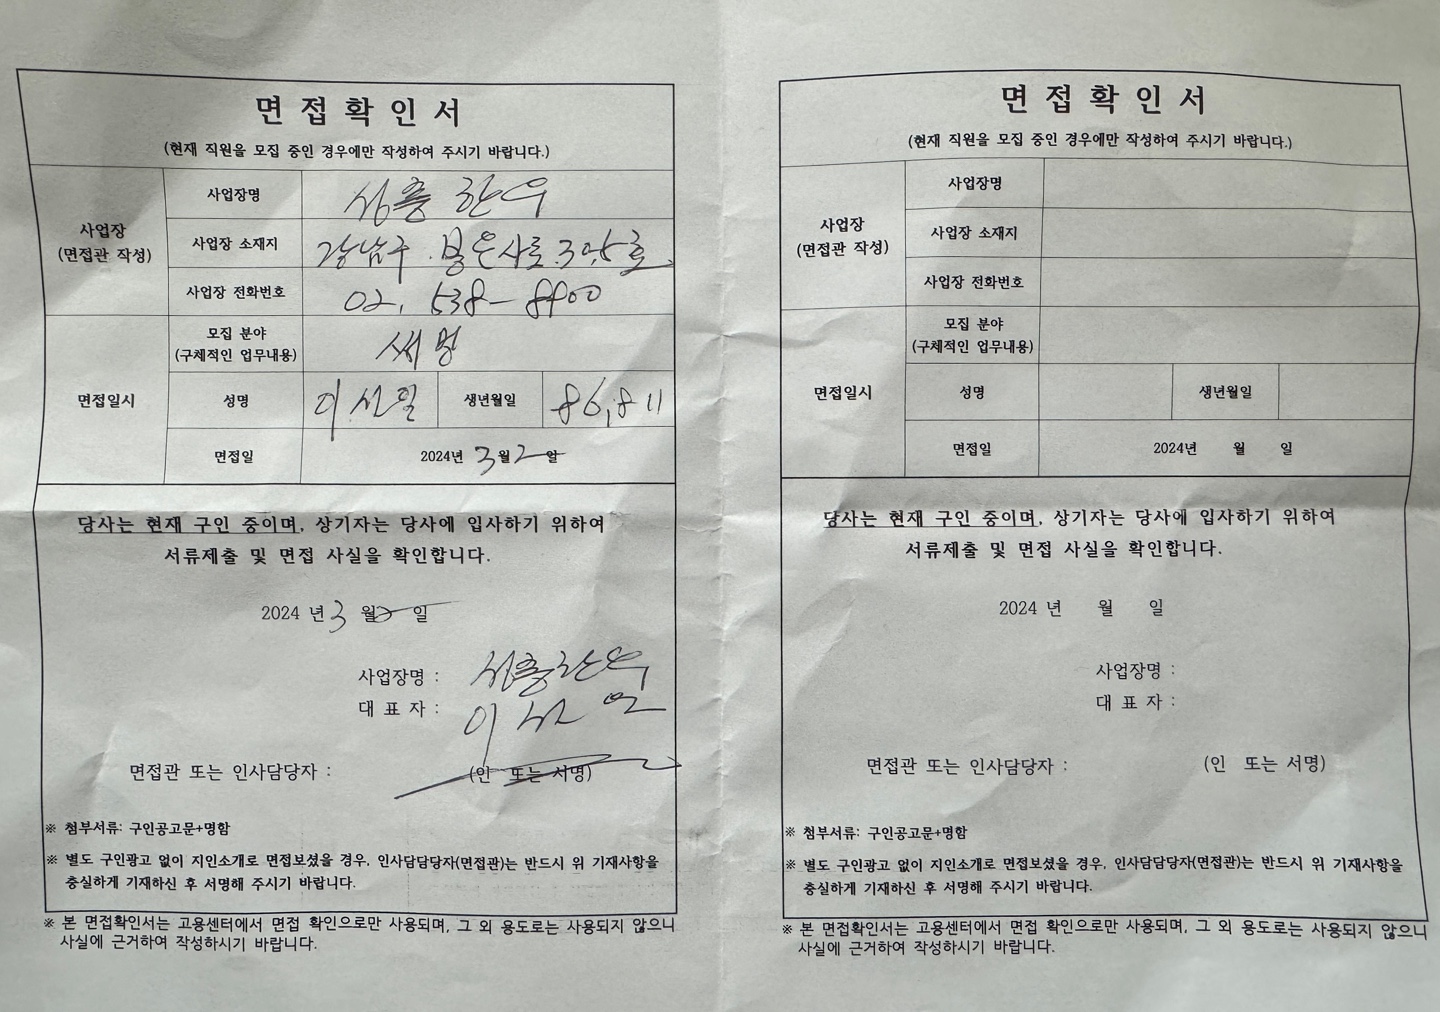 면접확인서
(현재 직원을 모집 중인 경우에만 작성하여 주시기 바랍니다.)
사업장
(면접관 작성)
사업장명 한우
사업장 소재지 강남구 봉은사로
사업장 전화번호 02. 538-
면접일시
모집 분야
(구체적인 업무내용)
성명 이선일 생년월일 86,8 11
면접일 2024년 3월 2일
당사는 현재 구인 중이며, 상기자는 당사에 입사하기 위하여
서류제출 및 면접 사실을 확인합니다.
2024 년 3 월 2 일
사업장명 : 한우
대 표 자 : 이선일
면접관 또는 인사담당자 : (인 또는 서명)
※ 첨부서류: 구인공고문+명함
※ 별도 구인광고 없이 지인소개로 면접보셨을 경우, 인사담담당자(면접관)는 반드시 위 기재사항을
충실하게 기재하신 후 서명해 주시기 바랍니다.
※ 본 면접확인서는 고용센터에서 면접 확인으로만 사용되며, 그 외 용도로는 사용되지 않으니
사실에 근거하여 작성하시기 바랍니다.
면접확인서
(현재 직원을 모집 중인 경우에만 작성하여 주시기 바랍니다.)
사업장
(면접관 작성)
사업장명
사업장 소재지
사업장 전화번호
면접일시
모집 분야
(구체적인 업무내용)
성명 생년월일
면접일 2024년 월 일
당사는 현재 구인 중이며, 상기자는 당사에 입사하기 위하여
서류제출 및 면접 사실을 확인합니다.
2024 년 월 일
사업장명 :
대 표 자 :
면접관 또는 인사담당자 : (인 또는 서명)
※ 첨부서류: 구인공고문+명함
※ 별도 구인광고 없이 지인소개로 면접보셨을 경우, 인사담담당자(면접관)는 반드시 위 기재사항을
충실하게 기재하신 후 서명해 주시기 바랍니다.
※ 본 면접확인서는 고용센터에서 면접 확인으로만 사용되며, 그 외 용도로는 사용되지 않으니
사실에 근거하여 작성하시기 바랍니다.